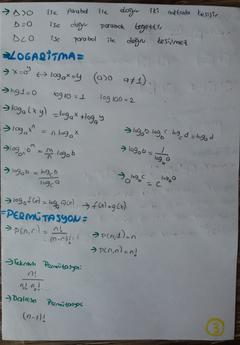 → Δ>0 ise parabol ile doğru iki noktada kesişir
Δ=0 ise doğru parabole teğettir
Δ<0 ise parabol ile doğru kesişmez
→LOGARİTMA=
→ x=a^y ↔ log_a x = y (a>0 a≠1)
→ log1=0 log10=1 log100=2
→ log_a(xy) = log_a x + log_a y
→ log_a x^n = n log_a x
→ log_a b log_b c log_c d = log_a d
→ log_{a^n} b^m = m/n log_a b
→ log_a b = 1/log_b a
→ log_a b = log_c b / log_c a
→ a^{log_b c} = c^{log_b a}
→ log_a f(x) = log_a g(x) → f(x)=g(x)
=PERMÜTASYON=
→ P(n,r) = n!/(n-r)!
→ P(n,1)=n
→ P(n,n)=n!
→ Tekrarlı Permütasyon:
n!/n₁! n₂! ...
→ Dairesel Permütasyon
(n-1)!
3